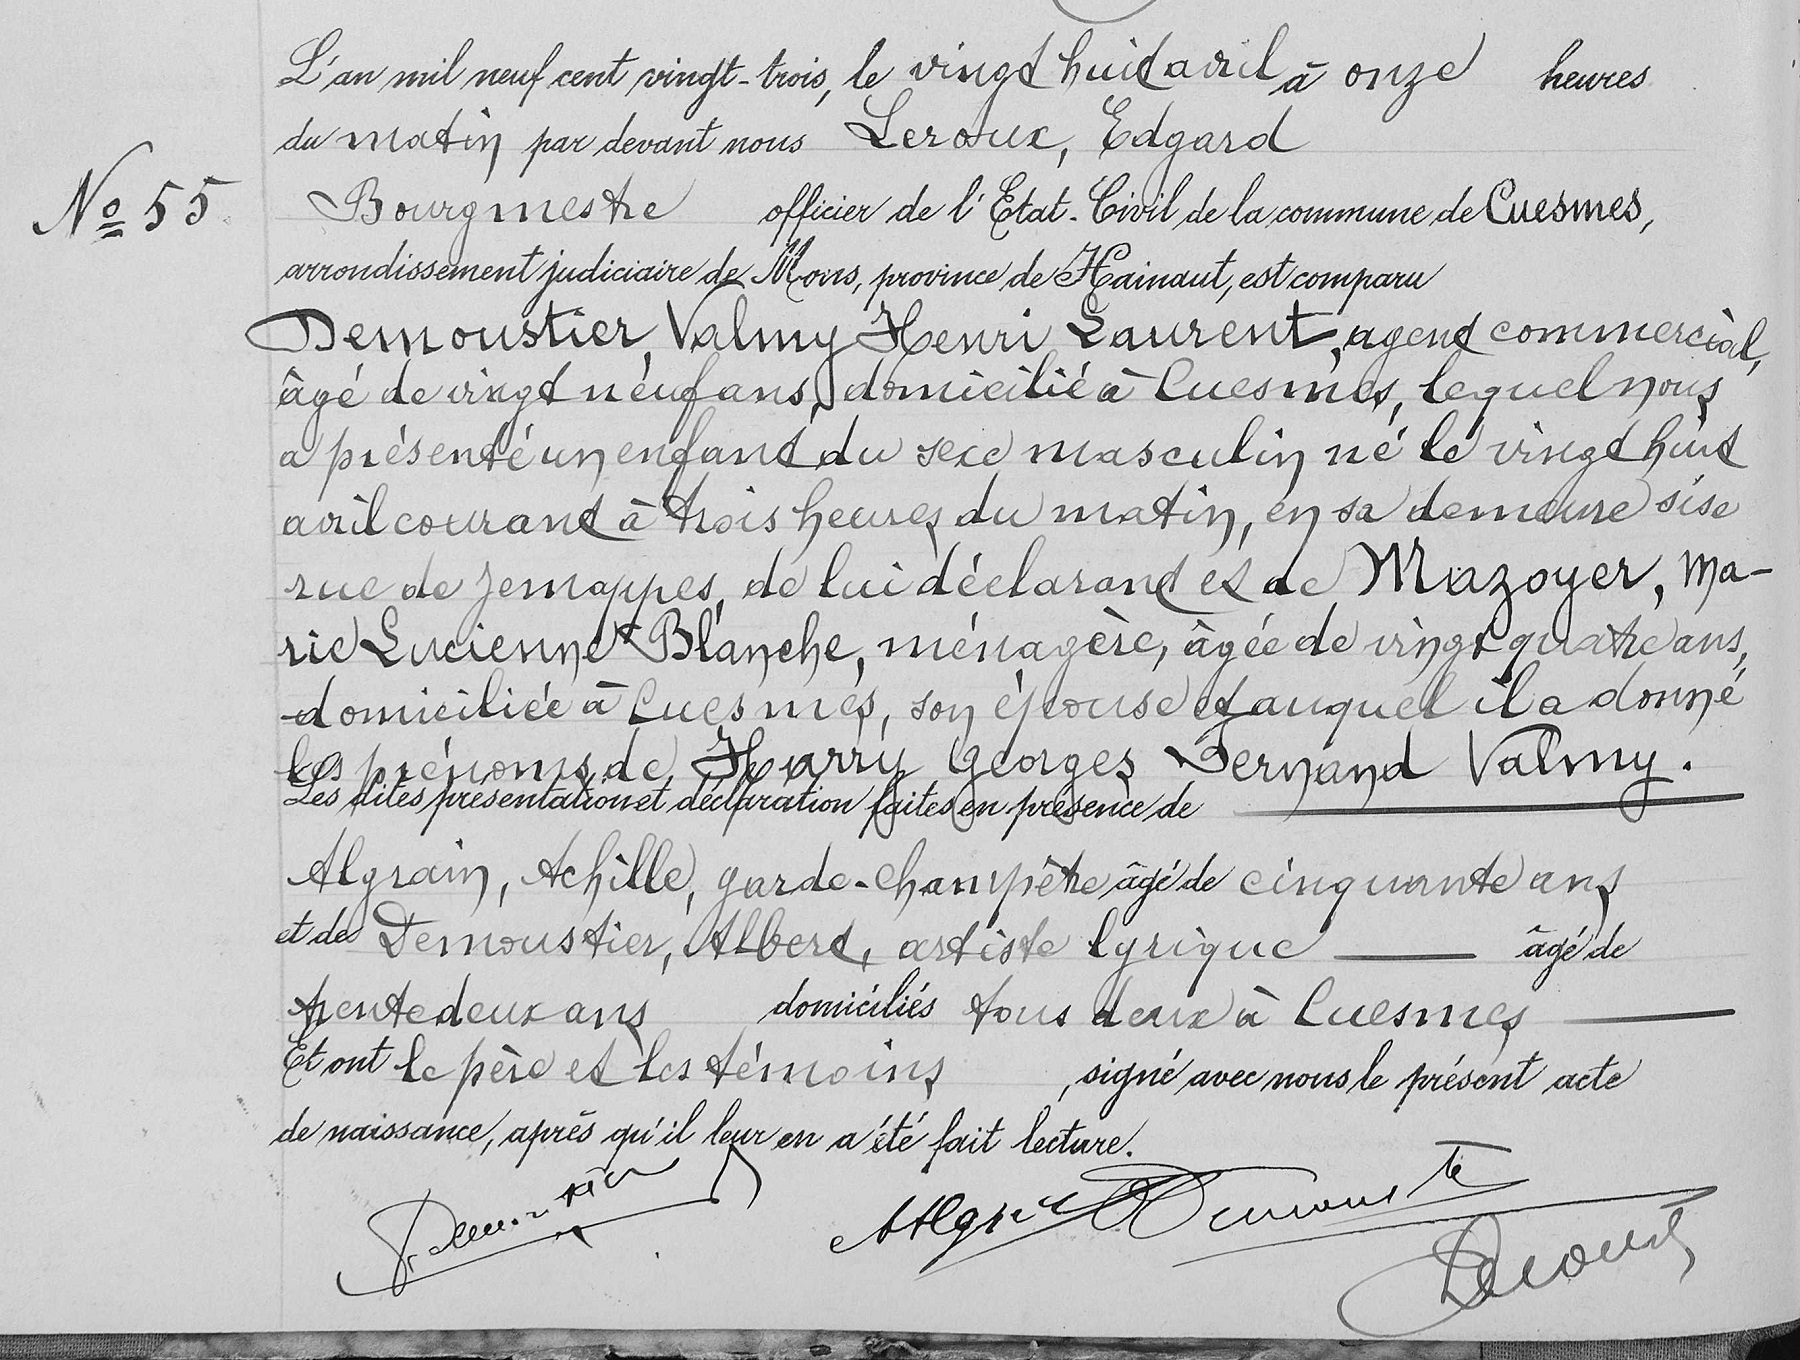 L'an mil neuf cent vingt-trois, le vingt huit avril à onze heures
du matin par devant nous Leroux, Edgard
No 55
Bourgmestre officier de l'Etat-Civil de la commune de Cuesmes,
arrondissement judiciaire de Mons, province de Hainaut, est comparu
Demoustier, Valmy Henri Laurent, agent commercial,
âgé de vingt neuf ans, domicilié à Cuesmes, lequel nous
a présenté un enfant du sexe masculin né le vingt huit
avril courant à trois heures du matin, en sa demeure sise
rue de Jemappes, de lui déclarant et de Mazoyer, Ma-
rie Lucienne Blanche, ménagère, âgée de vingt quatre ans,
domiciliée à Cuesmes, son épouse et auquel il a donné
les prénoms de Harry Georges Fernand Valmy.
Les dites présentation et déclaration faites en présence de
Algrain, Achille, garde-champêtre âgé de cinquante ans
et de Demoustier, Albert, artiste lyrique âgé de
trente deux ans domiciliés tous deux à Cuesmes
Et ont le père et les témoins, signé avec nous le présent acte
de naissance, après qu'il leur en a été fait lecture.